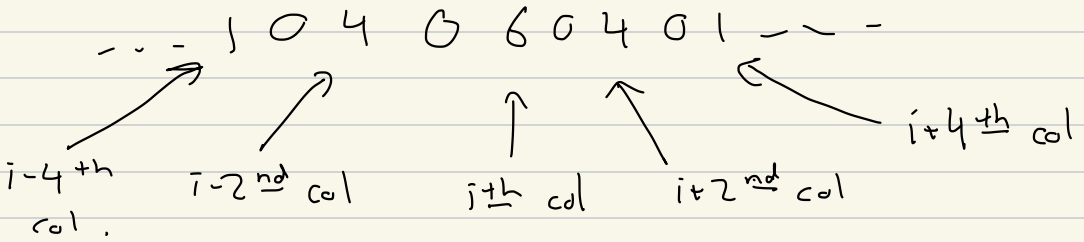 --- 1 0 4 0 6 0 4 0 1 ---
i+4th col
i-4th i-2nd col ith col i+2nd col
col.